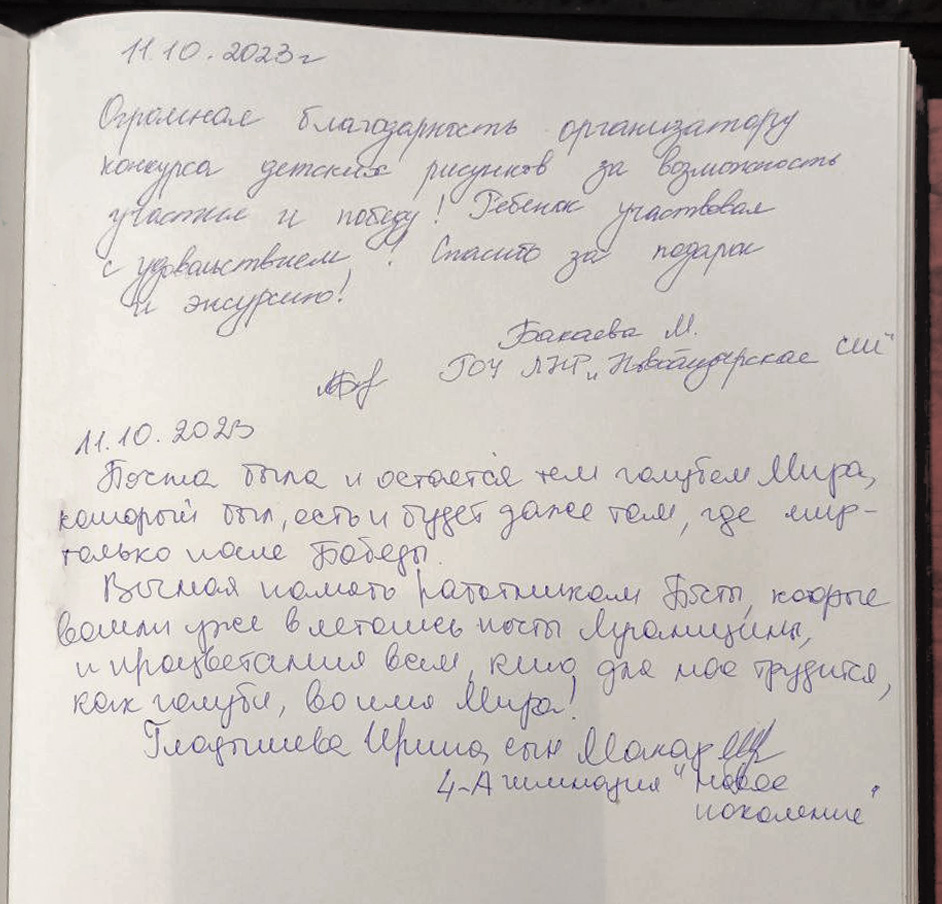 11.10.2023г
Огромная благодарность организатору
конкурса детских рисунков за возможность
участие и победу! Ребенок участвовал
с удовольствием! Спасибо за подарок
и экскурсию!
Бакаева М.
ГОУ ЛНР „ СШ"
11.10.2023
Почта была и остаётся тем голубем Мира,
который был, есть и будет даже там, где мир-
только после Победы.
Вечная память работникам Почты, которые
вошли уже в летопись почты Луганщины,
и процветания всем, кто для нас трудится,
как голуби, во имя Мира!
Гладышева Ирина, сын Макар
4-А гимназия "Новое
поколение"